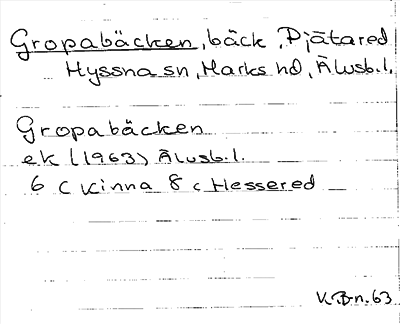 Gropabäcken, bäck, Pjätared
Hyssna sn, Marks hd, Älvsb.l.
Gropabäcken
ek (1963) Älvsb.l.
6 C Kinna 8 c Hessered
V.B-n. 63